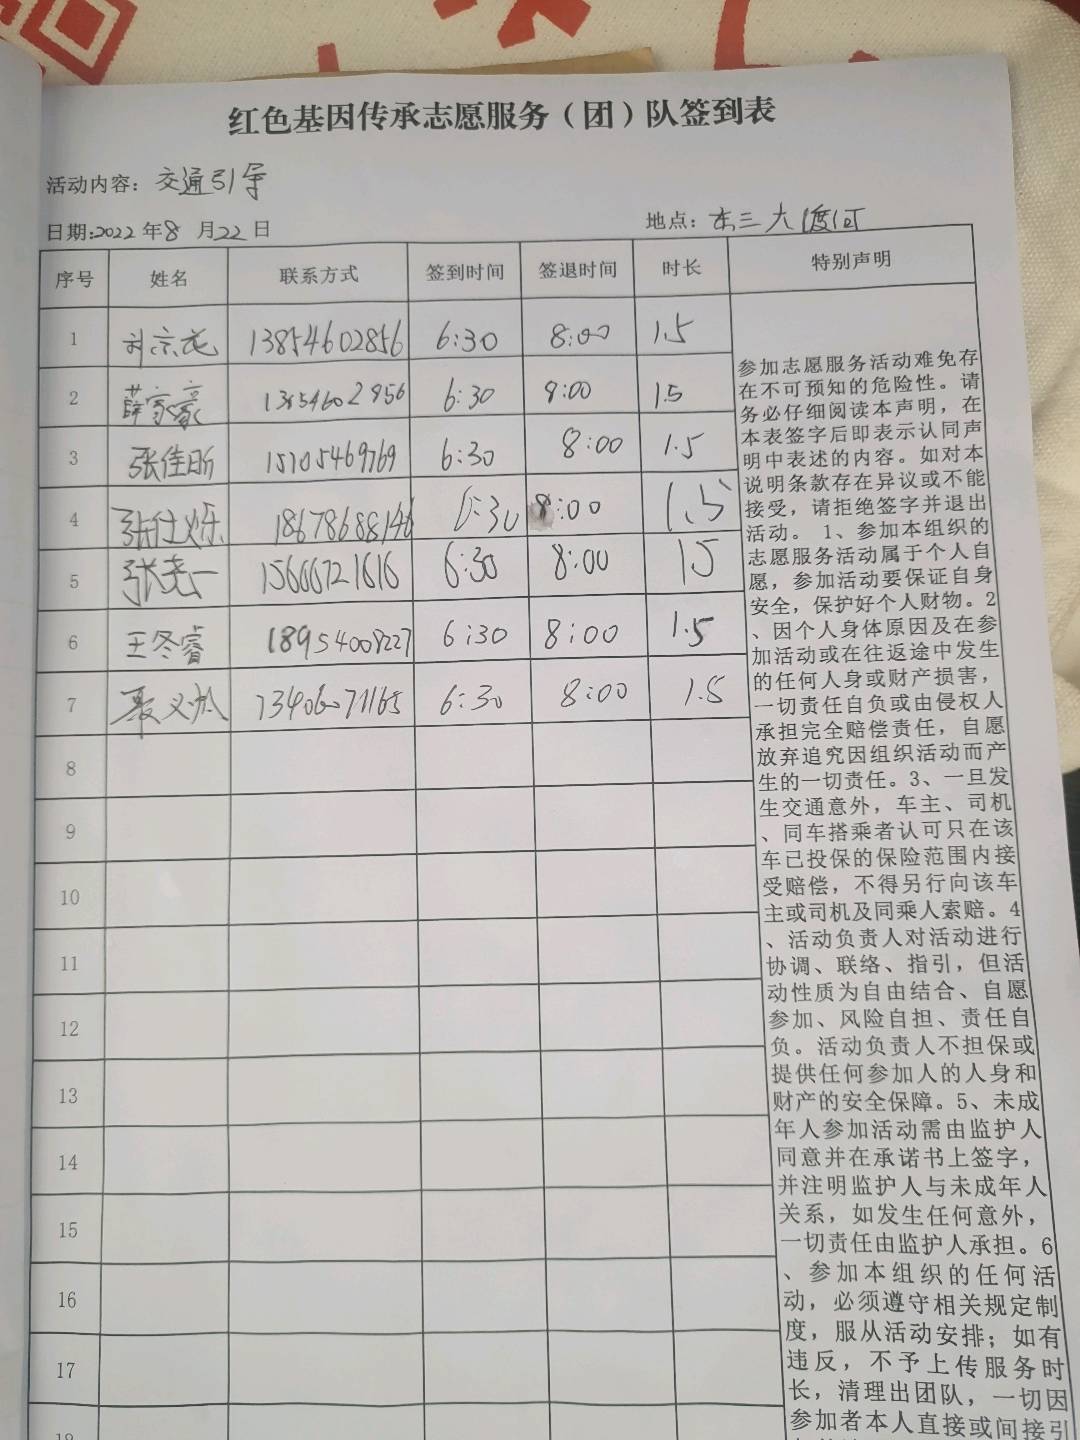 红色基因传承志愿服务（团）队签到表
活动内容：交通引导
日期:2022年8月22日 地点：东三大渡河
序号 姓名 联系方式 签到时间 签退时间 时长 特别声明
1 刘宗 13854602856 6:30 8:00 1.5
2 薛家豪 13854602856 6:30 8:00 1.5
3 张佳昕 15105469769 6:30 8:00 1.5
4 张仕烁 18678688146 6:30 8:00 1.5
5 张尧一 15606721616 6:30 8:00 15
6 王冬睿 18954008227 6:30 8:00 1.5
7 聂义 13406071165 6:30 8:00 1.5
8
9
10
11
12
13
14
15
16
17
18
参加志愿服务活动难免存
在不可预知的危险性。请
务必仔细阅读本声明，在
本表签字后即表示认同声
明中表述的内容。如对本
说明条款存在异议或不能
接受，请拒绝签字并退出
活动。 1、参加本组织的
志愿服务活动属于个人自
愿，参加活动要保证自身
安全，保护好个人财物。2
、因个人身体原因及在参
加活动或在往返途中发生
的任何人身或财产损害，
一切责任自负或由侵权人
承担完全赔偿责任，自愿
放弃追究因组织活动而产
生的一切责任。3、一旦发
生交通意外，车主、司机
、同车搭乘者认可只在该
车已投保的保险范围内接
受赔偿，不得另行向该车
主或司机及同乘人索赔。4
、活动负责人对活动进行
协调、联络、指引，但活
动性质为自由结合、自愿
参加、风险自担、责任自
负。活动负责人不担保或
提供任何参加人的人身和
财产的安全保障。5、未成
年人参加活动需由监护人
同意并在承诺书上签字，
并注明监护人与未成年人
关系，如发生任何意外，
一切责任由监护人承担。6
、参加本组织的任何活
动，必须遵守相关规定制
度，服从活动安排；如有
违反，不予上传服务时
长，清理出团队，一切因
参加者本人直接或间接引